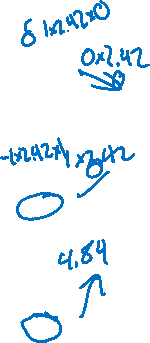 δ 1x2.42x0
0x2.42
-1x2.42x4 x2.42
4.84